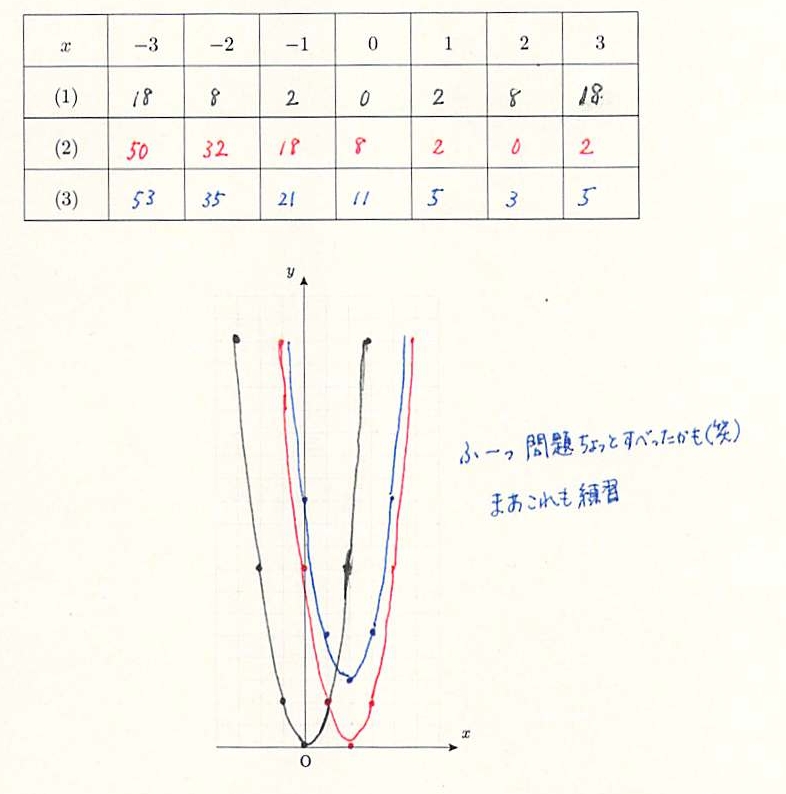 x −3 −2 −1 0 1 2 3
(1) 18 8 2 0 2 8 18
(2) 50 32 18 8 2 0 2
(3) 53 35 21 11 5 3 5
y
ふーっ 問題ちょっとすべったかも(笑)
まあこれも練習
x
O